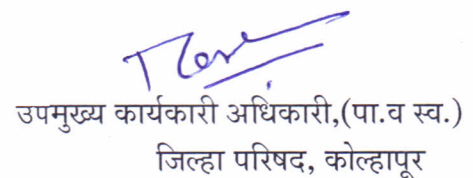 उपमुख्य कार्यकारी अधिकारी,(पा.व स्व.)
जिल्हा परिषद, कोल्हापूर